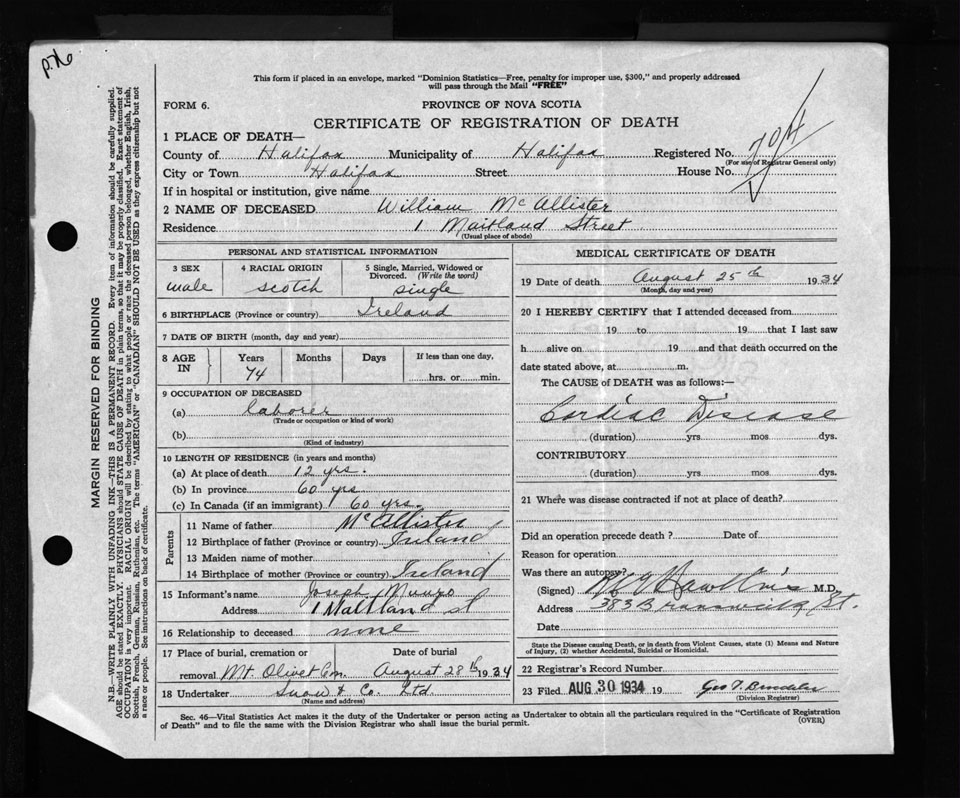 p.76
This form if placed in an envelope, marked "Dominion Statistics—Free, penalty for improper use, $300," and properly addressed
will pass through the Mail "FREE"
FORM 6.
PROVINCE OF NOVA SCOTIA
CERTIFICATE OF REGISTRATION OF DEATH
1 PLACE OF DEATH—
County of Halifax Municipality of Halifax Registered No. 704
(For use of Registrar General only)
City or Town Halifax Street House No.
If in hospital or institution, give name
2 NAME OF DECEASED William McAllister
Residence 1 Maitland Street
(Usual place of abode)
PERSONAL AND STATISTICAL INFORMATION
3 SEX 4 RACIAL ORIGIN 5 Single, Married, Widowed or
Divorced. (Write the word)
male scotch single
6 BIRTHPLACE (Province or country) Ireland
7 DATE OF BIRTH (month, day and year)
8 AGE IN Years Months Days If less than one day,
74 hrs. or min.
9 OCCUPATION OF DECEASED
(a) laborer
(Trade or occupation or kind of work)
(b)
(Kind of industry)
10 LENGTH OF RESIDENCE (in years and months)
(a) At place of death 12 yrs.
(b) In province 60 yrs
(c) In Canada (if an immigrant) 60 yrs.
Parents
11 Name of father McAllister
12 Birthplace of father (Province or country) Ireland
13 Maiden name of mother
14 Birthplace of mother (Province or country) Ireland
15 Informant's name Joseph Munro
Address 1 Maitland st
16 Relationship to deceased none
17 Place of burial, cremation or removal Date of burial
Mt. Olivet Cem. August 28th 1934
18 Undertaker Snow & Co. Ltd.
(Name and address)
MEDICAL CERTIFICATE OF DEATH
19 Date of death August 25th 1934
(Month, day and year)
20 I HEREBY CERTIFY that I attended deceased from
19 to 19 that I last saw
h alive on 19 and that death occurred on the
date stated above, at m.
The CAUSE of DEATH was as follows:—
Cardiac Disease
(duration) yrs mos dys.
CONTRIBUTORY
(duration) yrs mos dys.
21 Where was disease contracted if not at place of death?
Did an operation precede death ? Date of
Reason for operation
Was there an autopsy?
(Signed) M.D.
Address 383 Brunswick St.
Date
State the Disease causing Death, or in death from Violent Causes, state (1) Means and Nature
of Injury, (2) whether Accidental, Suicidal or Homicidal.
22 Registrar's Record Number
23 Filed AUG 30 1934 19 Geo T.
(Division Registrar)
Sec. 46—Vital Statistics Act makes it the duty of the Undertaker or person acting as Undertaker to obtain all the particulars required in the "Certificate of Registration
of Death" and to file the same with the Division Registrar who shall issue the burial permit. (OVER)
MARGIN RESERVED FOR BINDING
N.B.—WRITE PLAINLY WITH UNFADING INK—THIS IS A PERMANENT RECORD. Every item of information should be carefully supplied.
AGE should be stated EXACTLY. PHYSICIANS should STATE CAUSE OF DEATH in plain terms, so that it may be properly classified. Exact statement of
OCCUPATION is very important. RACIAL ORIGIN will be described by stating to what people or race the deceased person belonged, whether English, Irish,
Scottish, French, German, Russian, Ruthenian, etc. The terms "AMERICAN" or "CANADIAN" SHOULD NOT BE USED as they express citizenship but not
a race or people. See instructions on back of certificate.